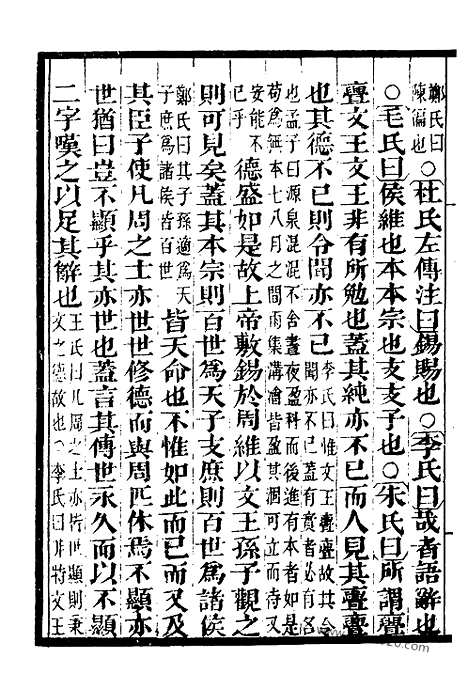 鄭氏曰陳偏也○杜氏左傳注曰錫賜也○李氏曰哉者語辭也
○毛氏曰侯維也本本宗也支支子也○朱氏曰所謂亹
亹文王文王非有所勉也蓋其純亦不已而人見其亹亹
也其德不已則令聞亦不已李氏曰惟文王亹亹故其令聞亦不已蓋有實者必有名
也孟子曰源泉混混不舍晝夜盈科而後進有本者如是苟爲無本七八月之間雨集溝澮皆盈其涸可立而待又
安能不已乎德盛如是故上帝敷錫於周維以文王孫子觀之
則可見矣蓋其本宗則百世爲天子支庶則百世爲諸侯
鄭氏曰其子孫適爲天子庶爲諸侯皆百世皆天命也不惟如此而已而又及
其臣子使凡周之士亦世世修德而與周匹休焉不顯亦
世猶曰豈不顯乎其亦世也蓋言其傳世永久而以不顯
二字嘆之以足其辭也王氏曰凡周之士亦皆世顯則秉文之德故也○李氏曰非特文王